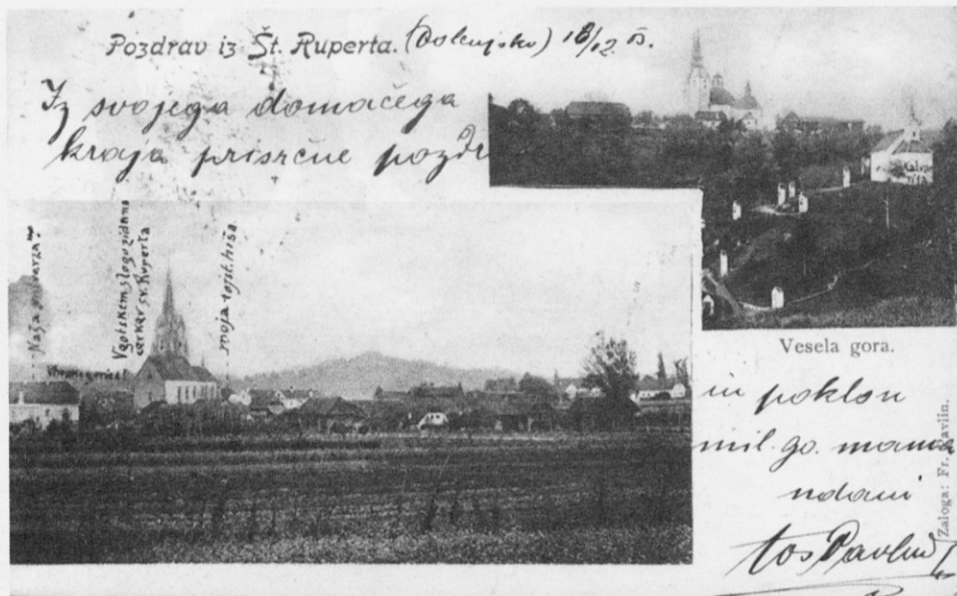 Pozdrav iz Št. Ruperta. (Dolenjsko) 18/12
Iz svojega domačega
kraja prisrčne pozdr
Kalva
rija
Naša
V gotskem slogu zidana
cerkev sv. Ruperta
moja rojst. hiša
Vesela gora.
in poklon
mil. go. mama
udani
Pavlin
Zaloga: Fr. Pavlin.